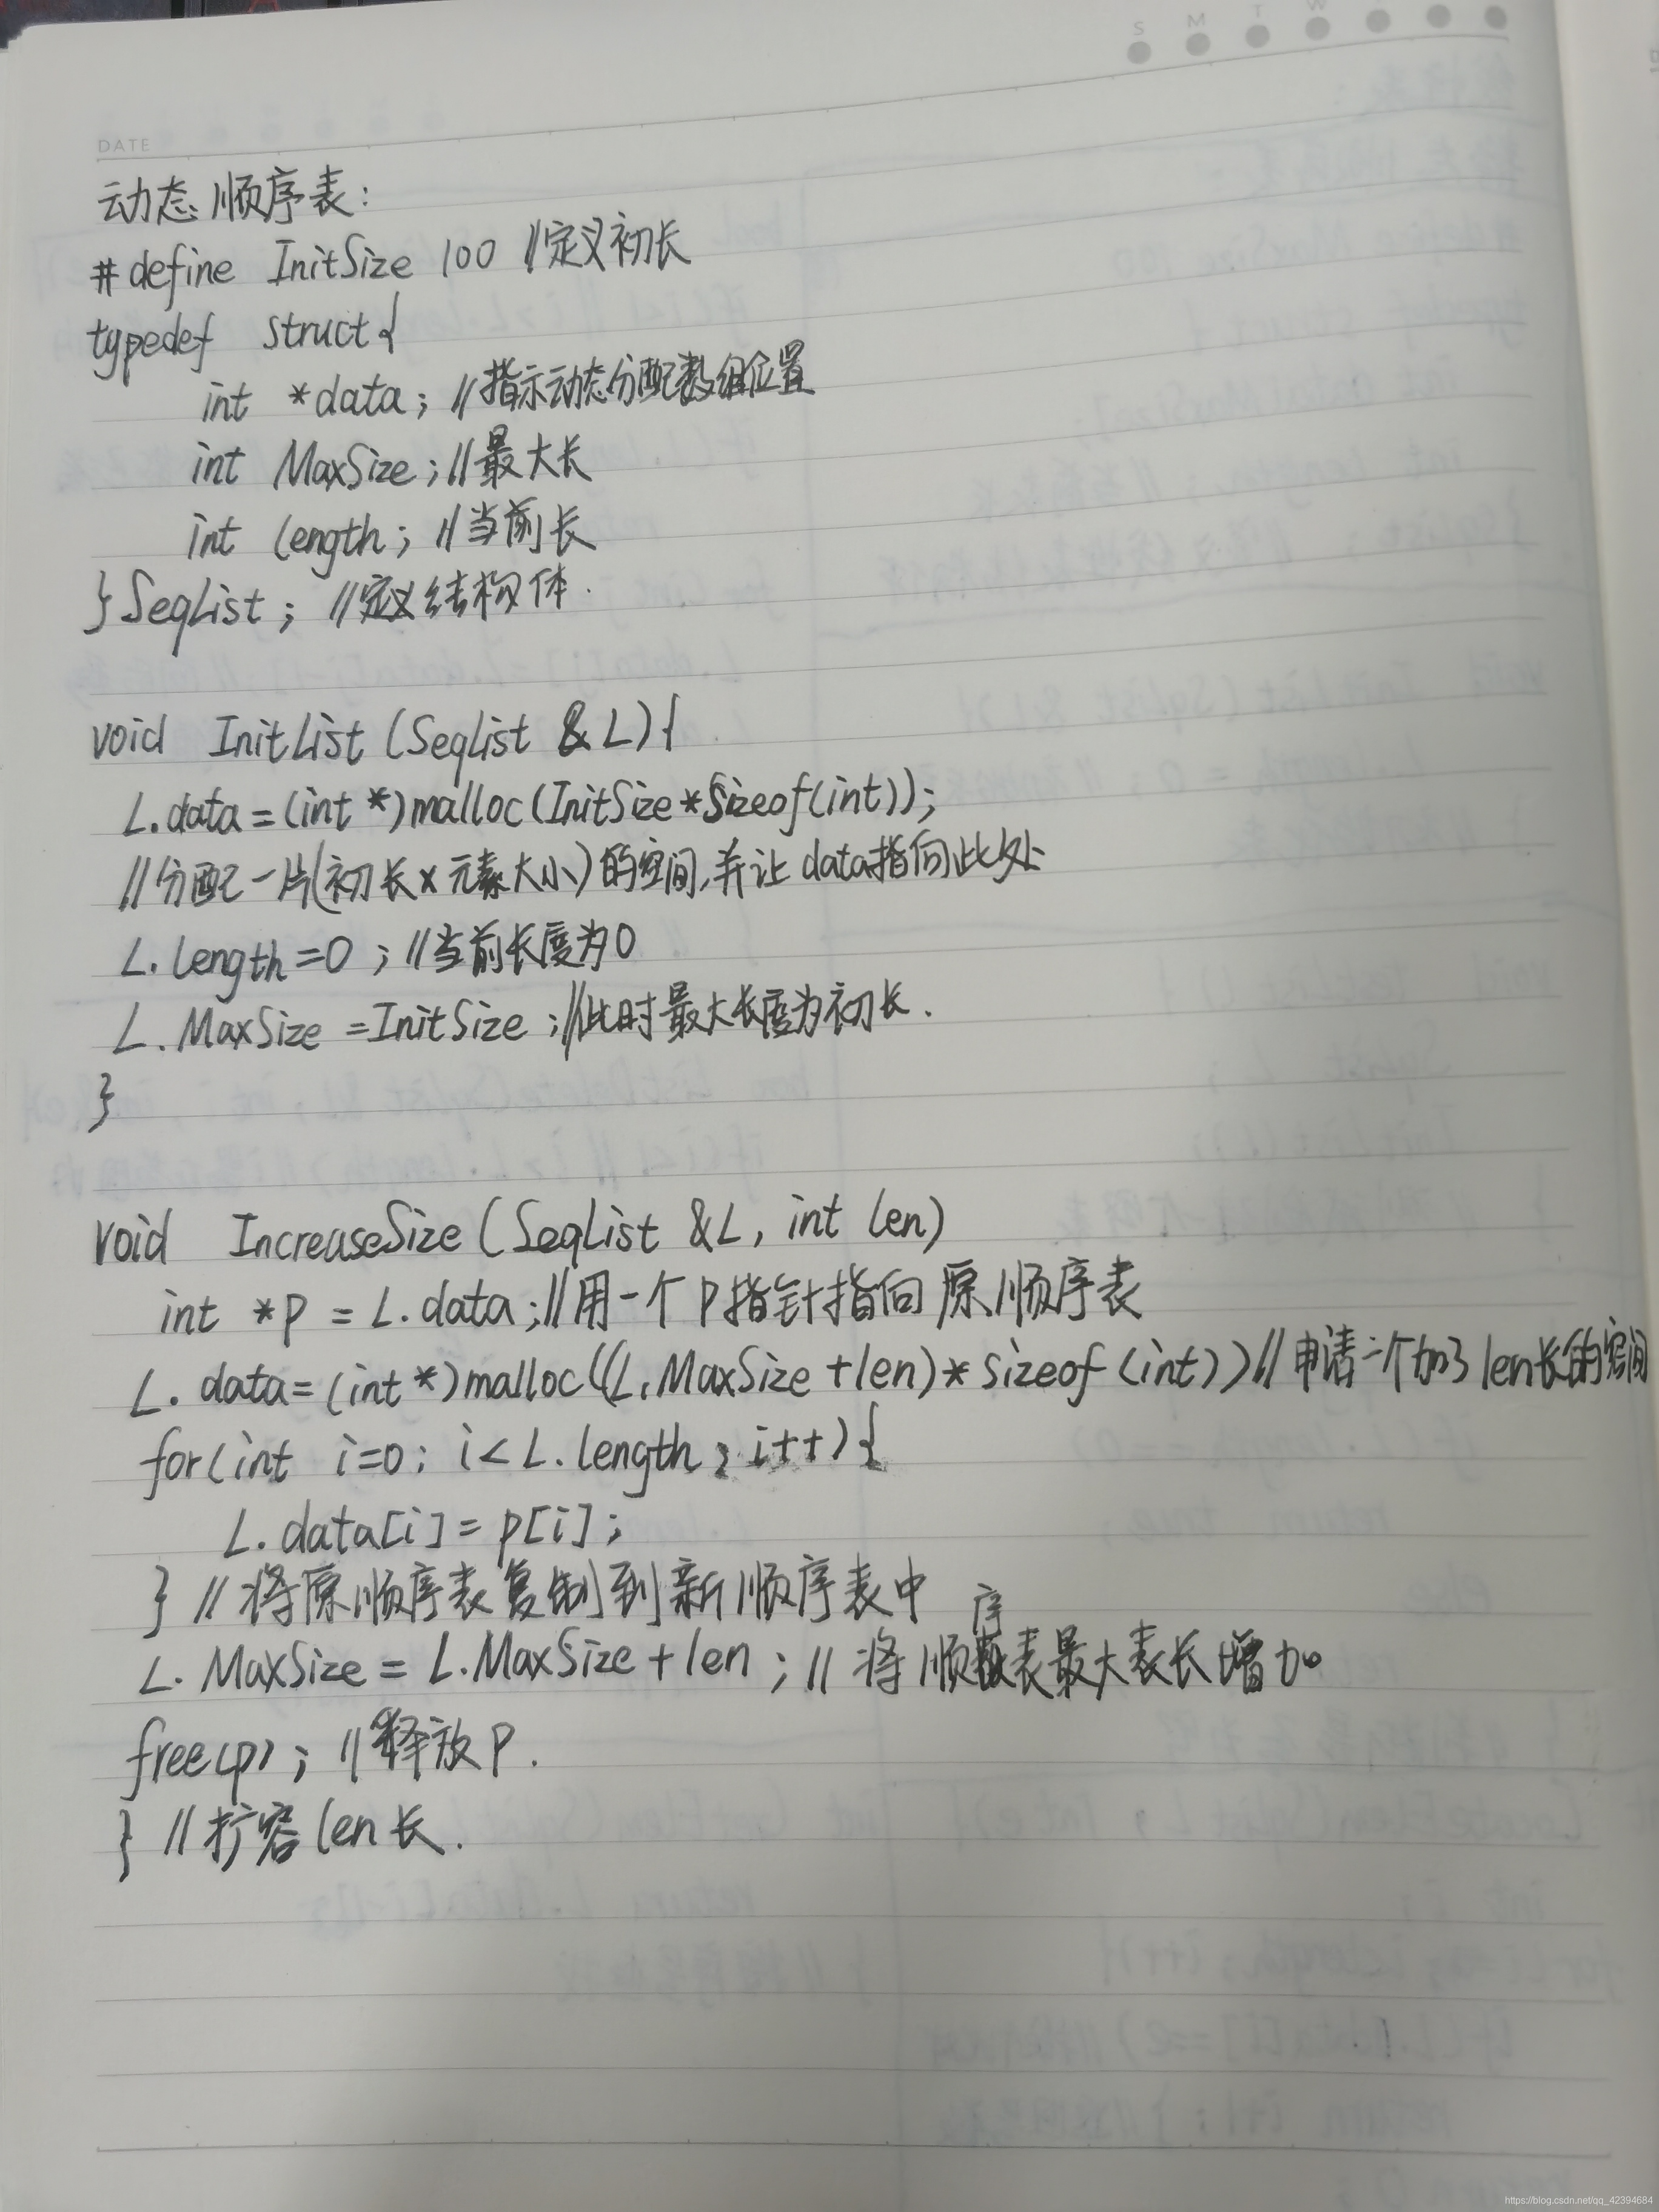 S M T W
DATE
动态顺序表:
#define InitSize 100 //定义初长
typedef struct{
int *data; //指示动态分配数组位置
int MaxSize; //最大长
int length; //当前长
}SeqList; //定义结构体.
void InitList(SeqList &L){
L.data=(int *)malloc(InitSize*Sizeof(int));
//分配一片(初长×元素大小)的空间,并让data指向此处
L.length=0; //当前长度为0
L.MaxSize=InitSize; //此时最大长度为初长.
}
void IncreaseSize(SeqList &L, int len)
int *p = L.data; //用一个P指针指向原顺序表
L.data=(int*)malloc((L.MaxSize+len)*sizeof(int)) //申请一个加了len长的空间
for(int i=0; i<L.length; i++){
L.data[i]=p[i];
} //将原顺序表复制到新顺序表中
L.MaxSize=L.MaxSize+len; //将顺序表最大表长增加
free(p); //释放P.
} //扩容len长.
https://blog.csdn.net/qq_42394684